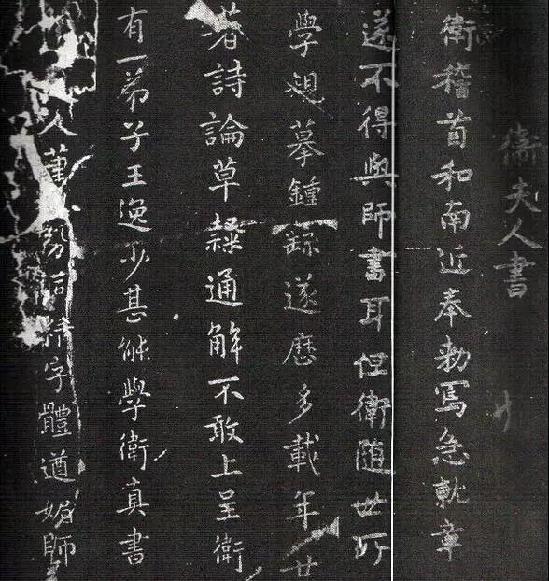 衛夫人書
衛稽首和南近奉勅寫急就章
遂不得與師書耳但衛隨世所
學規摹鍾繇遂歷多載年廿
著詩論草隸通解不敢上呈衛
有一弟子王逸少甚能學衛真書
人筆勢洞精字體遒媚師